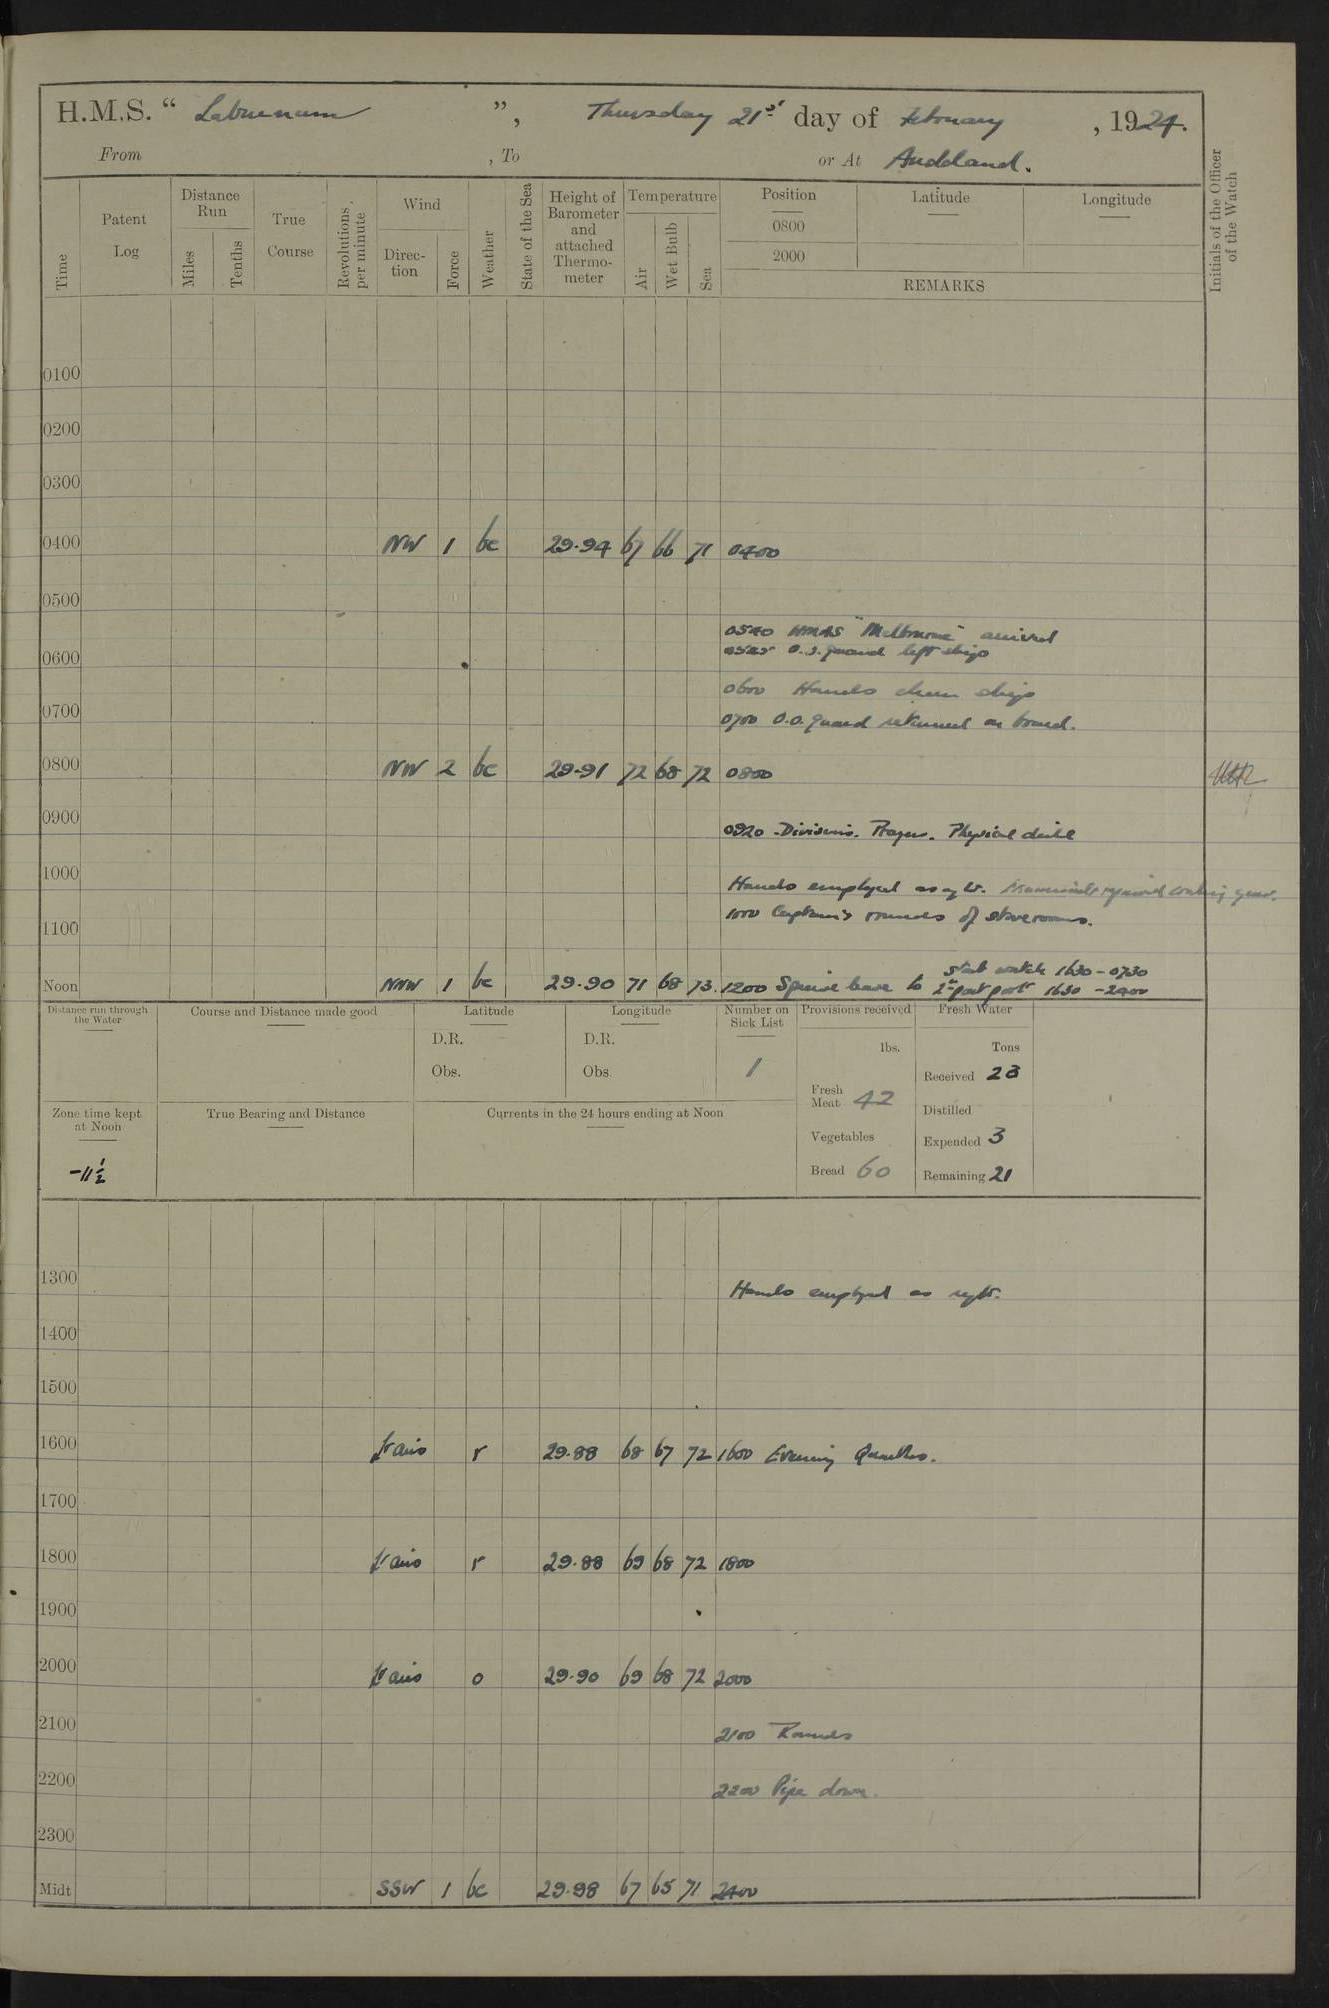 H.M.S. “ Laburnum ”, Thursday 21st day of February , 1924.
From , To or At Auckland.
Time
Patent Log
Distance Run
Miles
Tenths
True Course
Revolutions per minute
Wind
Direc-tion
Force
Weather
State of the Sea
Height of Barometer and attached Thermo-meter
Temperature
Air
Wet Bulb
Sea
Position
Latitude
Longitude
0800
2000
REMARKS
Initials of the Officer of the Watch
0100
0200
0300
0400 NW 1 bc 29.94 67 66 71 0400
0500
0540 HMAS "Melbourne" arrived
0545 O.O. guard left ship
0600
0600 Hands clean ship
0700
0700 O.O. guard returned on board.
0800 NW 2 bc 29.91 72 68 72 0800
0900
0920 Divisions. Prayers. Physical drill
1000
Hands employed as reqte.
1000 Captain's rounds of storerooms.
1100
Stab watch 1630 - 0730
Noon NNW 1 bc 29.90 71 68 73. 1200 Special leave to 2nd part port 1630 - 2400
Distance run through the Water
Course and Distance made good
Latitude
D.R.
Obs.
Longitude
D.R.
Obs.
Number on Sick List
1
Provisions received
lbs.
Fresh Meat 42
Vegetables
Bread 60
Fresh Water
Tons
Received 23
Distilled
Expended 3
Remaining 21
Zone time kept at Noon
-11½
True Bearing and Distance
Currents in the 24 hours ending at Noon
1300
Hands employed as reqte.
1400
1500
1600 lt airs r 29.88 68 67 72 1600 Evening Quarters.
1700
1800 lt airs r 29.88 69 68 72 1800
1900
2000 lt airs o 29.90 69 68 72 2000
2100
2100 Rounds
2200
2200 Pipe down.
2300
Midt SSW 1 bc 29.98 67 65 71 2400